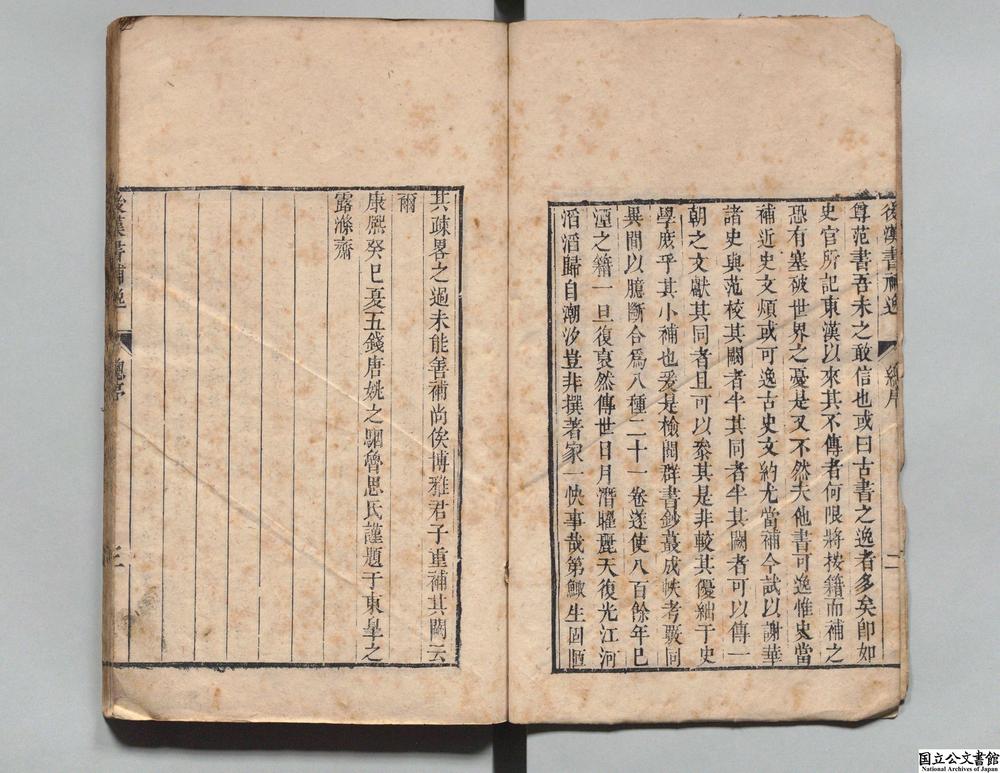 後漢書補逸
總序
二
尊范書吾未之敢信也或曰古書之逸者多矣卽如
史官所記東漢以來其不傳者何限將按籍而補之
恐有塞破世界之憂是又不然夫他書可逸惟史當
補近史文煩或可逸古史文約尤當補今試以謝華
諸史與范校其闕者半其同者半其闕者可以傳一
朝之文獻其同者且可以叅其是非較其優絀于史
學庶乎其小補也爰是檢閱群書鈔蕞成帙考覈同
異間以臆斷合爲八種二十一卷遂使八百餘年已
湮之籍一旦復裒然傳世日月潛曜麗天復光江河
滔滔歸自潮汐豈非撰著家一快事哉第鯫生固陋
其疎畧之過未能善補尚俟博雅君子重補其闕云
爾
康熙癸巳夏五錢唐姚之駰魯思氏謹題于東臯之
露滌齋
後漢書補逸
總序
三
国立公文書館
National Archives of Japan